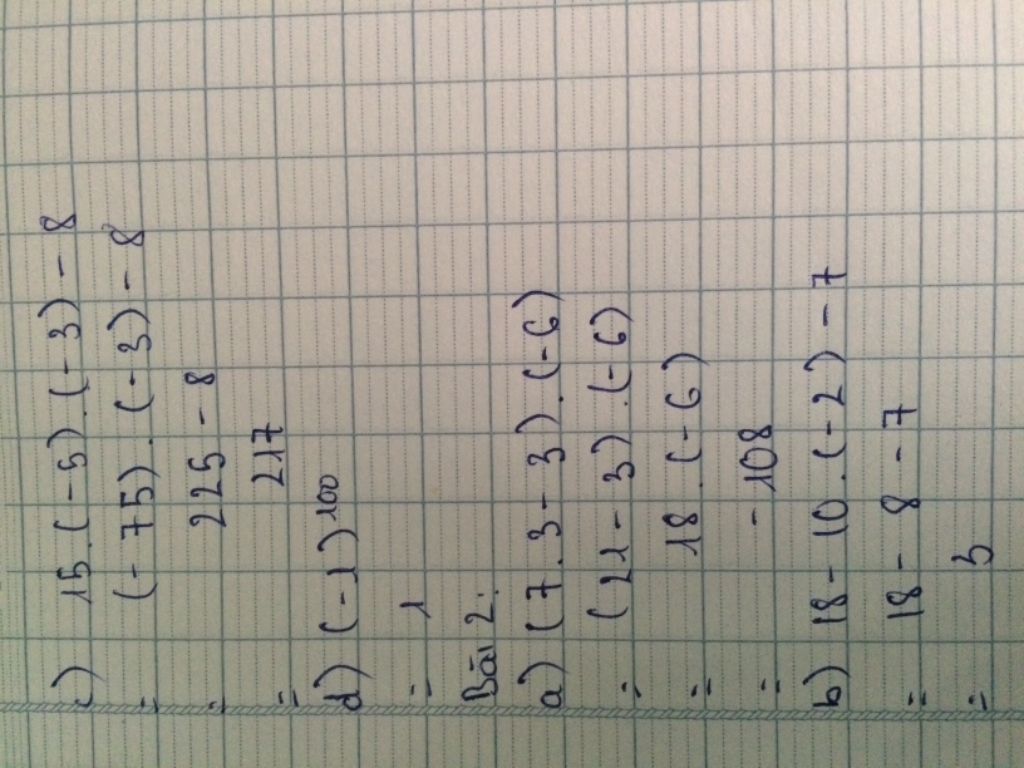 c) 15.(-5).(-3) - 8
= (-75).(-3) - 8
= 225 - 8
= 217
d) (-1)¹⁰⁰
= 1
Bài 2:
a) (7.3 - 3).(-6)
= (21 - 3).(-6)
= 18.(-6)
= -108
b) 18 - 10.(-2) - 7
= 18 - 8 - 7
= 3